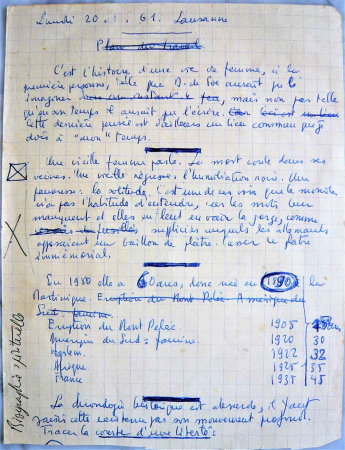 Lundi 20. . 61. Lausanne
Plan du travail
C'est l'histoire d'une vie de femme, à la
première personne, telle que D. de Foe aurait pu l'
imaginer mais non pas telle
qu'en son temps il aurait pu l'écrire.
Cette dernière pensée est d'ailleurs un lieu commun que je
dois à "mon" temps.
Une vieille femme parle. La mort coule dans ses
veines. Une vieille négresse, l'humiliation noire. Une
: la solitude. C'est une de ces voix que le monde
n'a pas l'habitude d'entendre, car les mots leur
manquent et elles en ont la gorge comme
suppliciés auxquels les allemands
apposaient un bâillon de plâtre. Casser ce plâtre
immémorial.
En 1950 elle a 60 ans, donc née en 1890 à la
Martinique. Eruption du Mont Pelée. Amérique du
Sud
Eruption du Mont Pelée. 1905
Amérique du Sud = 1920 30
1922 32
Afrique 1925 35
France 1935 45
La chronologie historique est absurde, il faut
saisir cette existence par son mouvement profond.
Tracer la courbe d'une liberté:
Biographie spirituelle